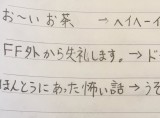 お〜いお茶 →ヘイヘーイ
FF外から失礼します。→ド
ほんとうにあった怖い話→うそ